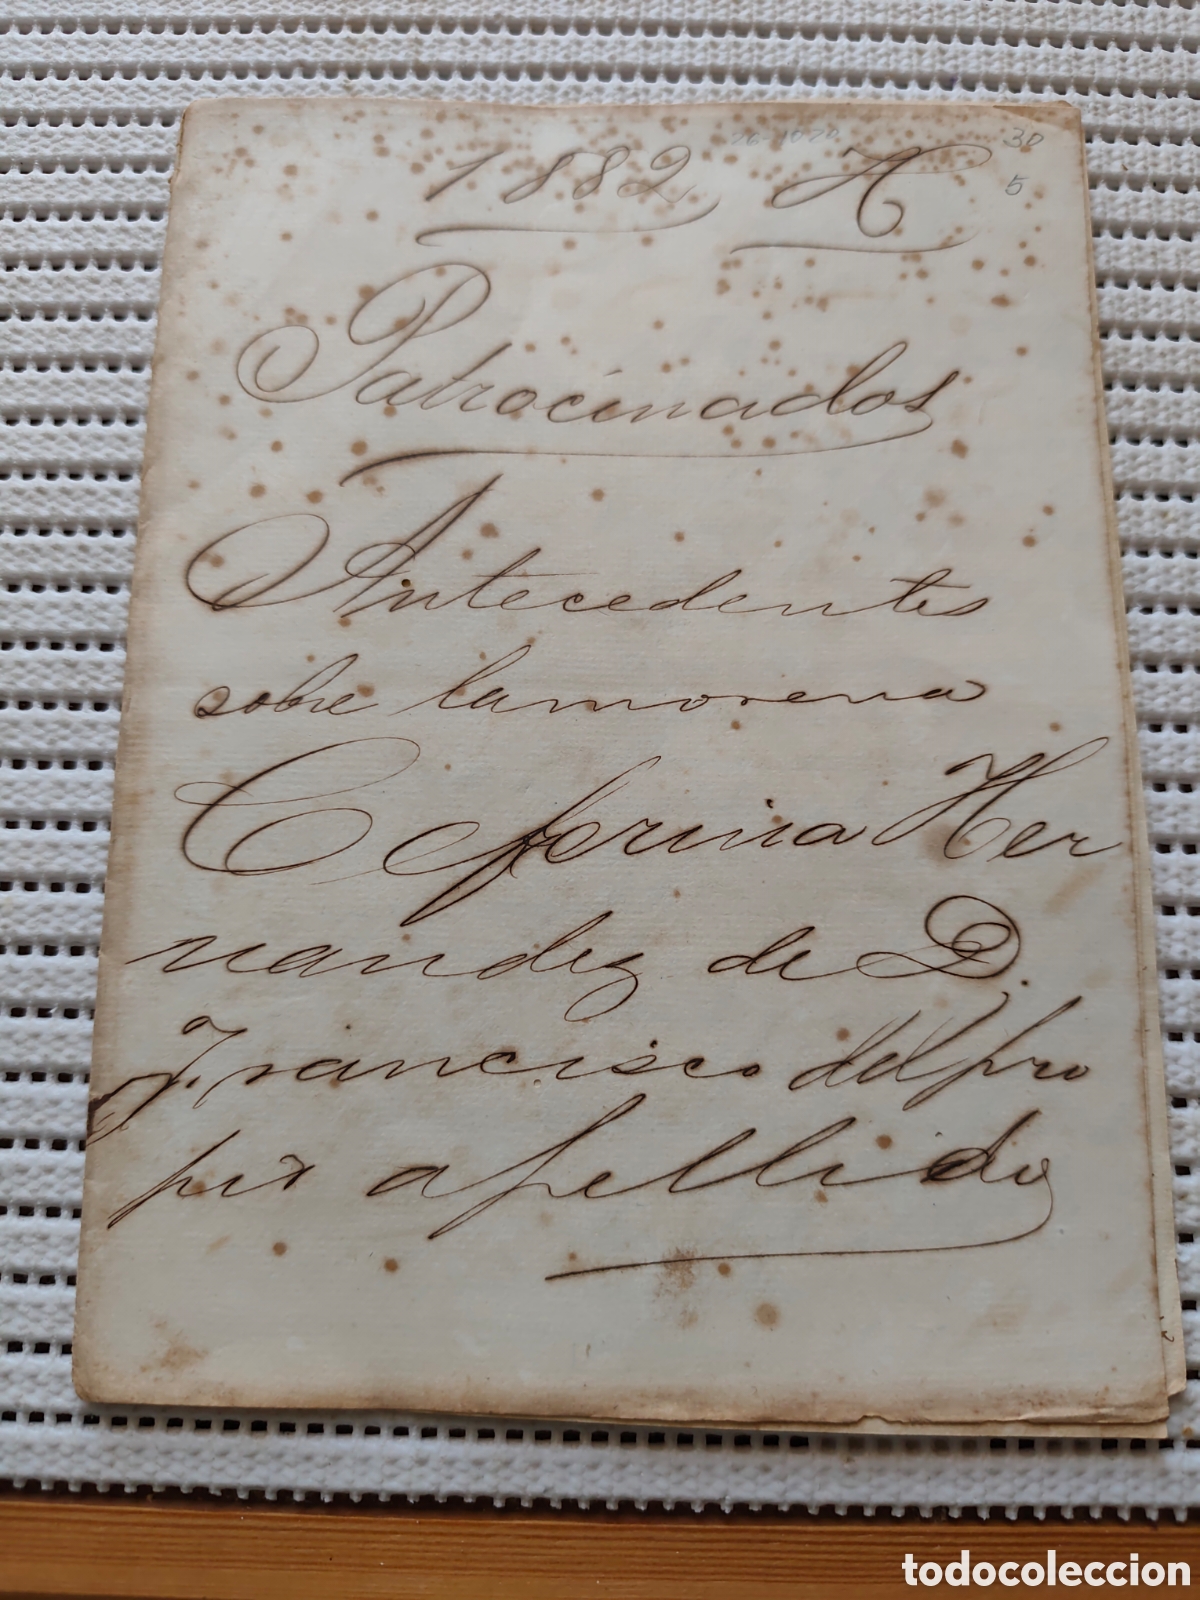 1882 H
30
5
Patrocinados
Antecedentes
sobre la morena
Ceferina Her
nandez de D.
Francisco del pro
pio apellido
todocoleccion